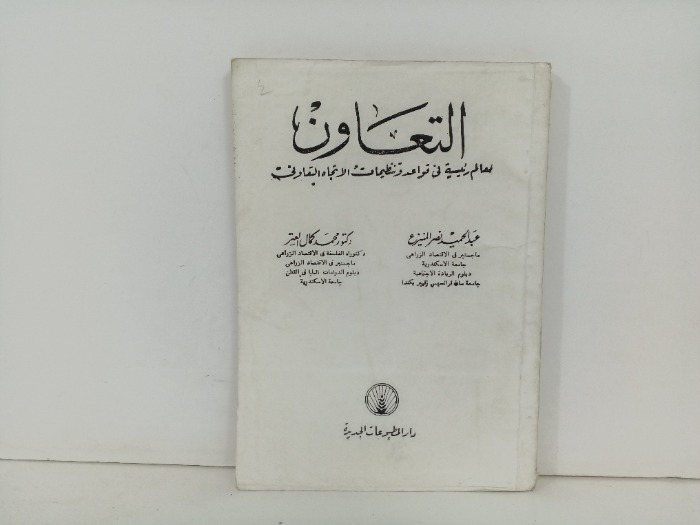 التعاون
معالم رئيسية فى قواعد وتنظيمات الاتجاه التعاونى
عبد الحميد نصر المنيزع
ماجستير فى الاقتصاد الزراعى
جامعة الاسكندرية
دبلوم الريادة الاجتماعية
جامعة سانت فرانسيس زفيير بكندا
دكتور محمد كمال العتر
دكتوراه الفلسفة فى الاقتصاد الزراعى
ماجستير فى الاقتصاد الزراعى
دبلوم الدراسات العليا فى القطن
جامعة الاسكندرية
دار المطبوعات الجديدة